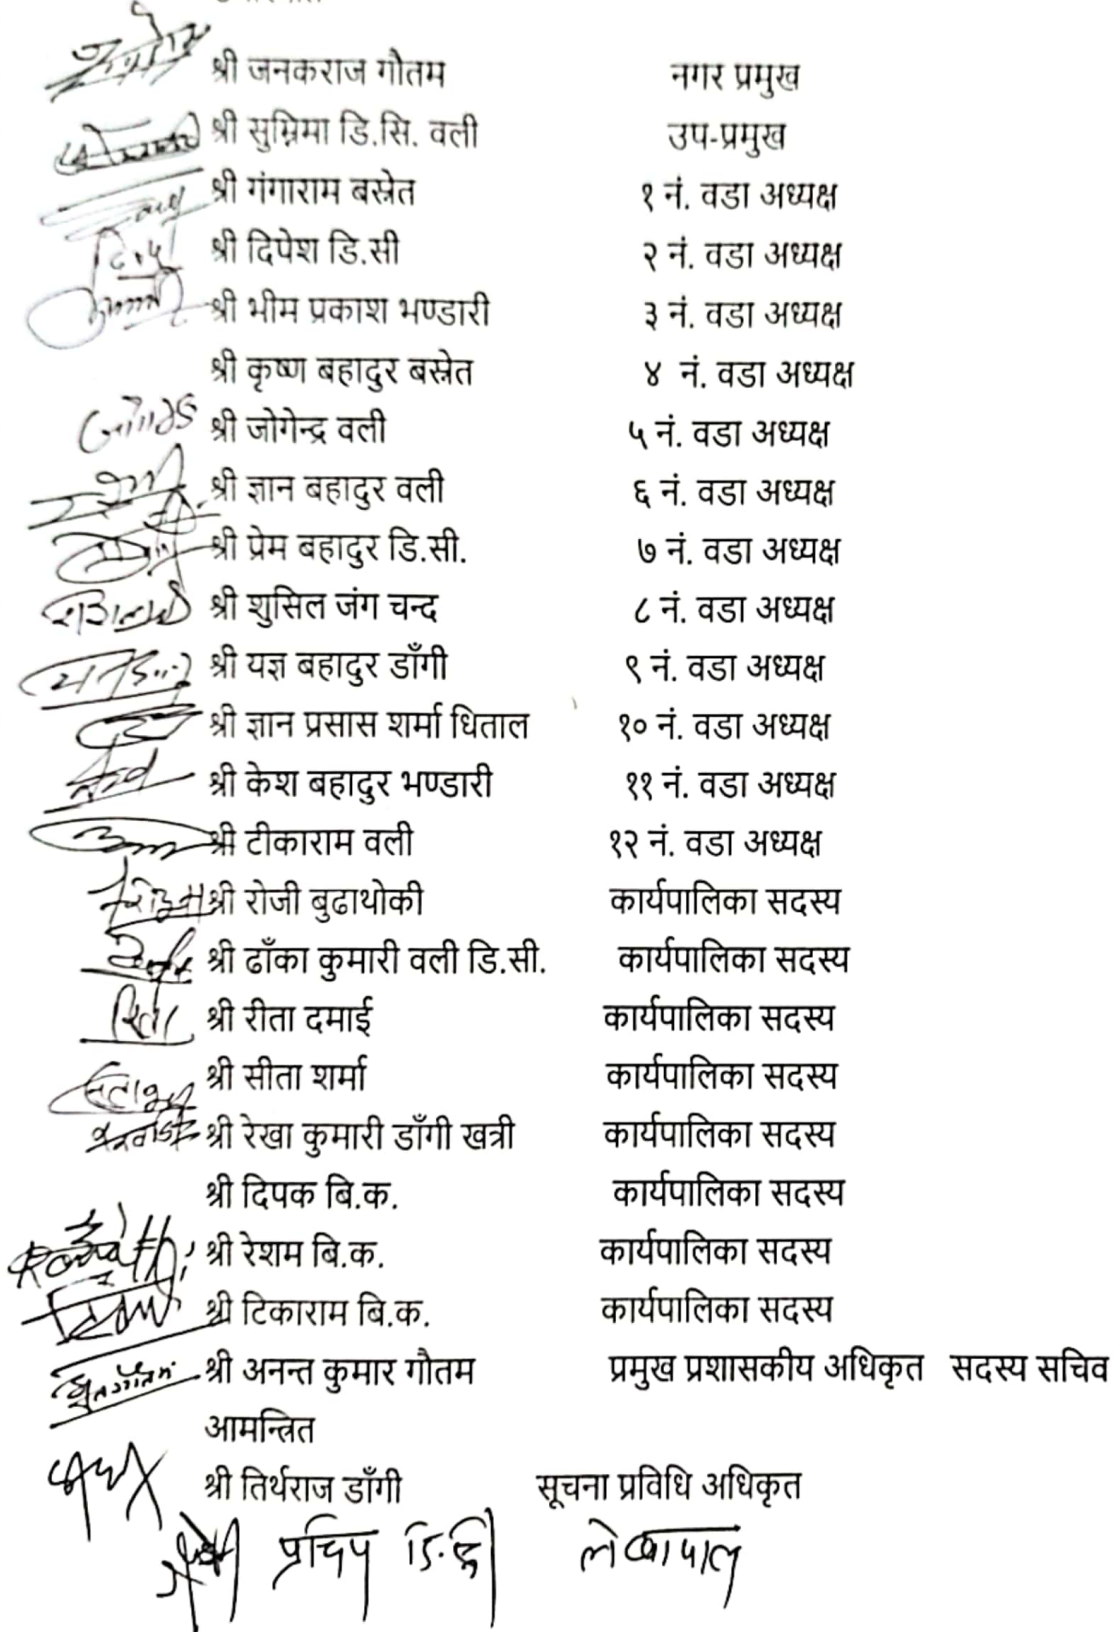 श्री जनकराज गौतम नगर प्रमुख
श्री सुम्निमा डि.सि. वली उप-प्रमुख
श्री गंगाराम बस्नेत १ नं. वडा अध्यक्ष
श्री दिपेश डि.सी २ नं. वडा अध्यक्ष
श्री भीम प्रकाश भण्डारी ३ नं. वडा अध्यक्ष
श्री कृष्ण बहादुर बस्नेत ४ नं. वडा अध्यक्ष
श्री जोगेन्द्र वली ५ नं. वडा अध्यक्ष
श्री ज्ञान बहादुर वली ६ नं. वडा अध्यक्ष
श्री प्रेम बहादुर डि.सी. ७ नं. वडा अध्यक्ष
श्री शुसिल जंग चन्द ८ नं. वडा अध्यक्ष
श्री यज्ञ बहादुर डाँगी ९ नं. वडा अध्यक्ष
श्री ज्ञान प्रसास शर्मा धिताल १० नं. वडा अध्यक्ष
श्री केश बहादुर भण्डारी ११ नं. वडा अध्यक्ष
श्री टीकाराम वली १२ नं. वडा अध्यक्ष
श्री रोजी बुढाथोकी कार्यपालिका सदस्य
श्री ढाँका कुमारी वली डि.सी. कार्यपालिका सदस्य
श्री रीता दमाई कार्यपालिका सदस्य
श्री सीता शर्मा कार्यपालिका सदस्य
श्री रेखा कुमारी डाँगी खत्री कार्यपालिका सदस्य
श्री दिपक बि.क. कार्यपालिका सदस्य
श्री रेशम बि.क. कार्यपालिका सदस्य
श्री टिकाराम बि.क. कार्यपालिका सदस्य
श्री अनन्त कुमार गौतम प्रमुख प्रशासकीय अधिकृत सदस्य सचिव
आमन्त्रित
श्री तिर्थराज डाँगी सूचना प्रविधि अधिकृत
लेखापाल